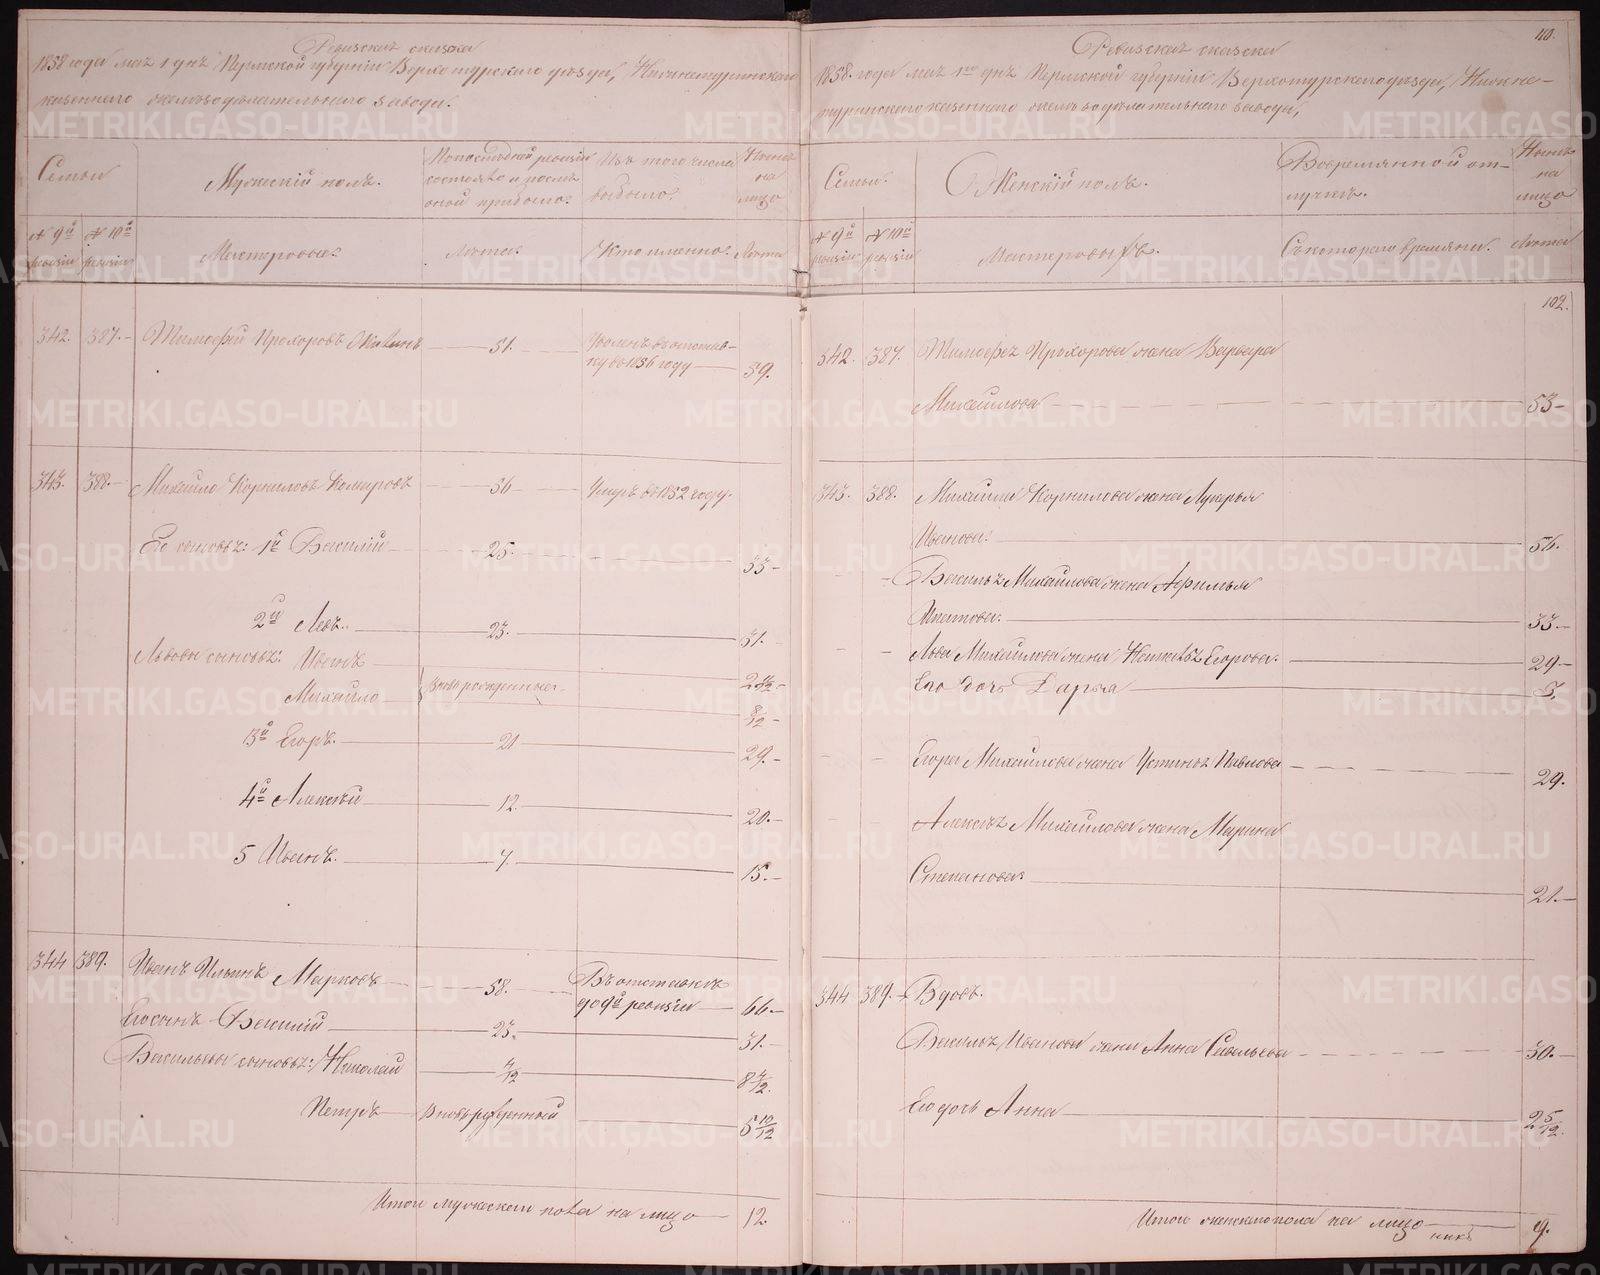 Ревизская сказка
1858 года мая 1 дня Пермской губернiи Верхотурскаго уѣзда, Нижнетуринскаго
казеннаго желѣзодѣлательнаго завода.
Семьи
Мужескiй полъ.
По последней ревизiи
состояло и послѣ
оной прибыло.
Изъ того числа
выбыло.
Нынѣ
на
лицо
№ 9й
ревизiи
№ 10й
ревизiи
Мастеровые.
Лѣта.
Когда именно.
Лѣта
342. 387. Тимофей Прохоровъ 51. Уволенъ въ отстав-
ку въ 1856 году 59.
343. 388. Михайло Корниловъ Комаровъ 36 Умеръ въ 1852 году.
Его сыновья: 1й Василiй 25. 33
2й Левъ. 23. 31.
Львовы сыновья: Иванъ
Михайло Вновь рожденные 8/12
3й Егоръ. 21 29.
4й Алексѣй 12. 20.
5 Иванъ. 7. 15.
344 389. Иванъ Ильинъ Марковъ 58. Въ отставкѣ
до 9й ревизiи 66.
Его сынъ Василiй 23. 31.
Васильевы сыновья: Николай 4/12 8 4/12.
Петръ Вновь рожденный 5 10/12
Итого мужеска пола на лицо 12.
110.
Ревизская сказка
1858. года мая 1го дня Пермской губернiи Верхотурскаго уѣзда, Нижне-
туринскаго казеннаго желѣзодѣлательнаго завода,
Семьи.
Женскiй полъ.
Во временной от-
лучкѣ.
Нынѣ
на
лицо
№ 9й
ревизiи
№ 10й
ревизiи
Мастеровыхъ.
Съ котораго времяни.
Лѣта
102.
342. 387. Тимофея Прохорова жена Варвара
Михайлова 53
343. 388. Михайлы Корнилова жена Лукерья
Иванова. 56.
Василья Михайлова жена Афимья
Ипатова. 33.
Льва Михайлова жена Наталья Егорова. 29
Его дочь Дарья 5.
Егора Михайлова жена Устинья Павлова 29.
Алексѣя Михайлова жена Марина
Степанова 21.
344 389. Вдовъ.
Василья Иванова жена Анна Савельева 30.
Его дочь Анна 2 5/12.
Итого женска пола на лицо 9.
METRIKI.GASO-URAL.RU